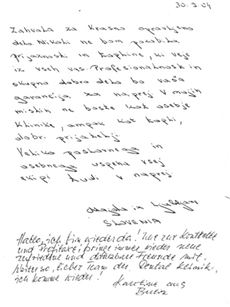 30. 3. 04
Zahvala za krasno opravljeno
delo Nikoli ne bom pozabila
prijaznosti in topline, ki veje
iz vseh vas. Profesionalnost in
skupno dobro delo bo vaša
garancija za naprej v mojih
mislih ne boste kot osebje
klinike, ampak kot topli,
dobri prijatelji.
Veliko poslovnega in
osebnega uspeha vsej
ekipi tudi v naprej
iz Ljubljane
SLOVENIA
Hallo, ich bin wieder da! Nur zur Kontrolle
und Profilaxe, bringe immer wieder neue
zufriedene und dankbare Freunde mit.
Weiter so, lieber Team der Dental Klinik,
ich komme wieder!
Karoline aus